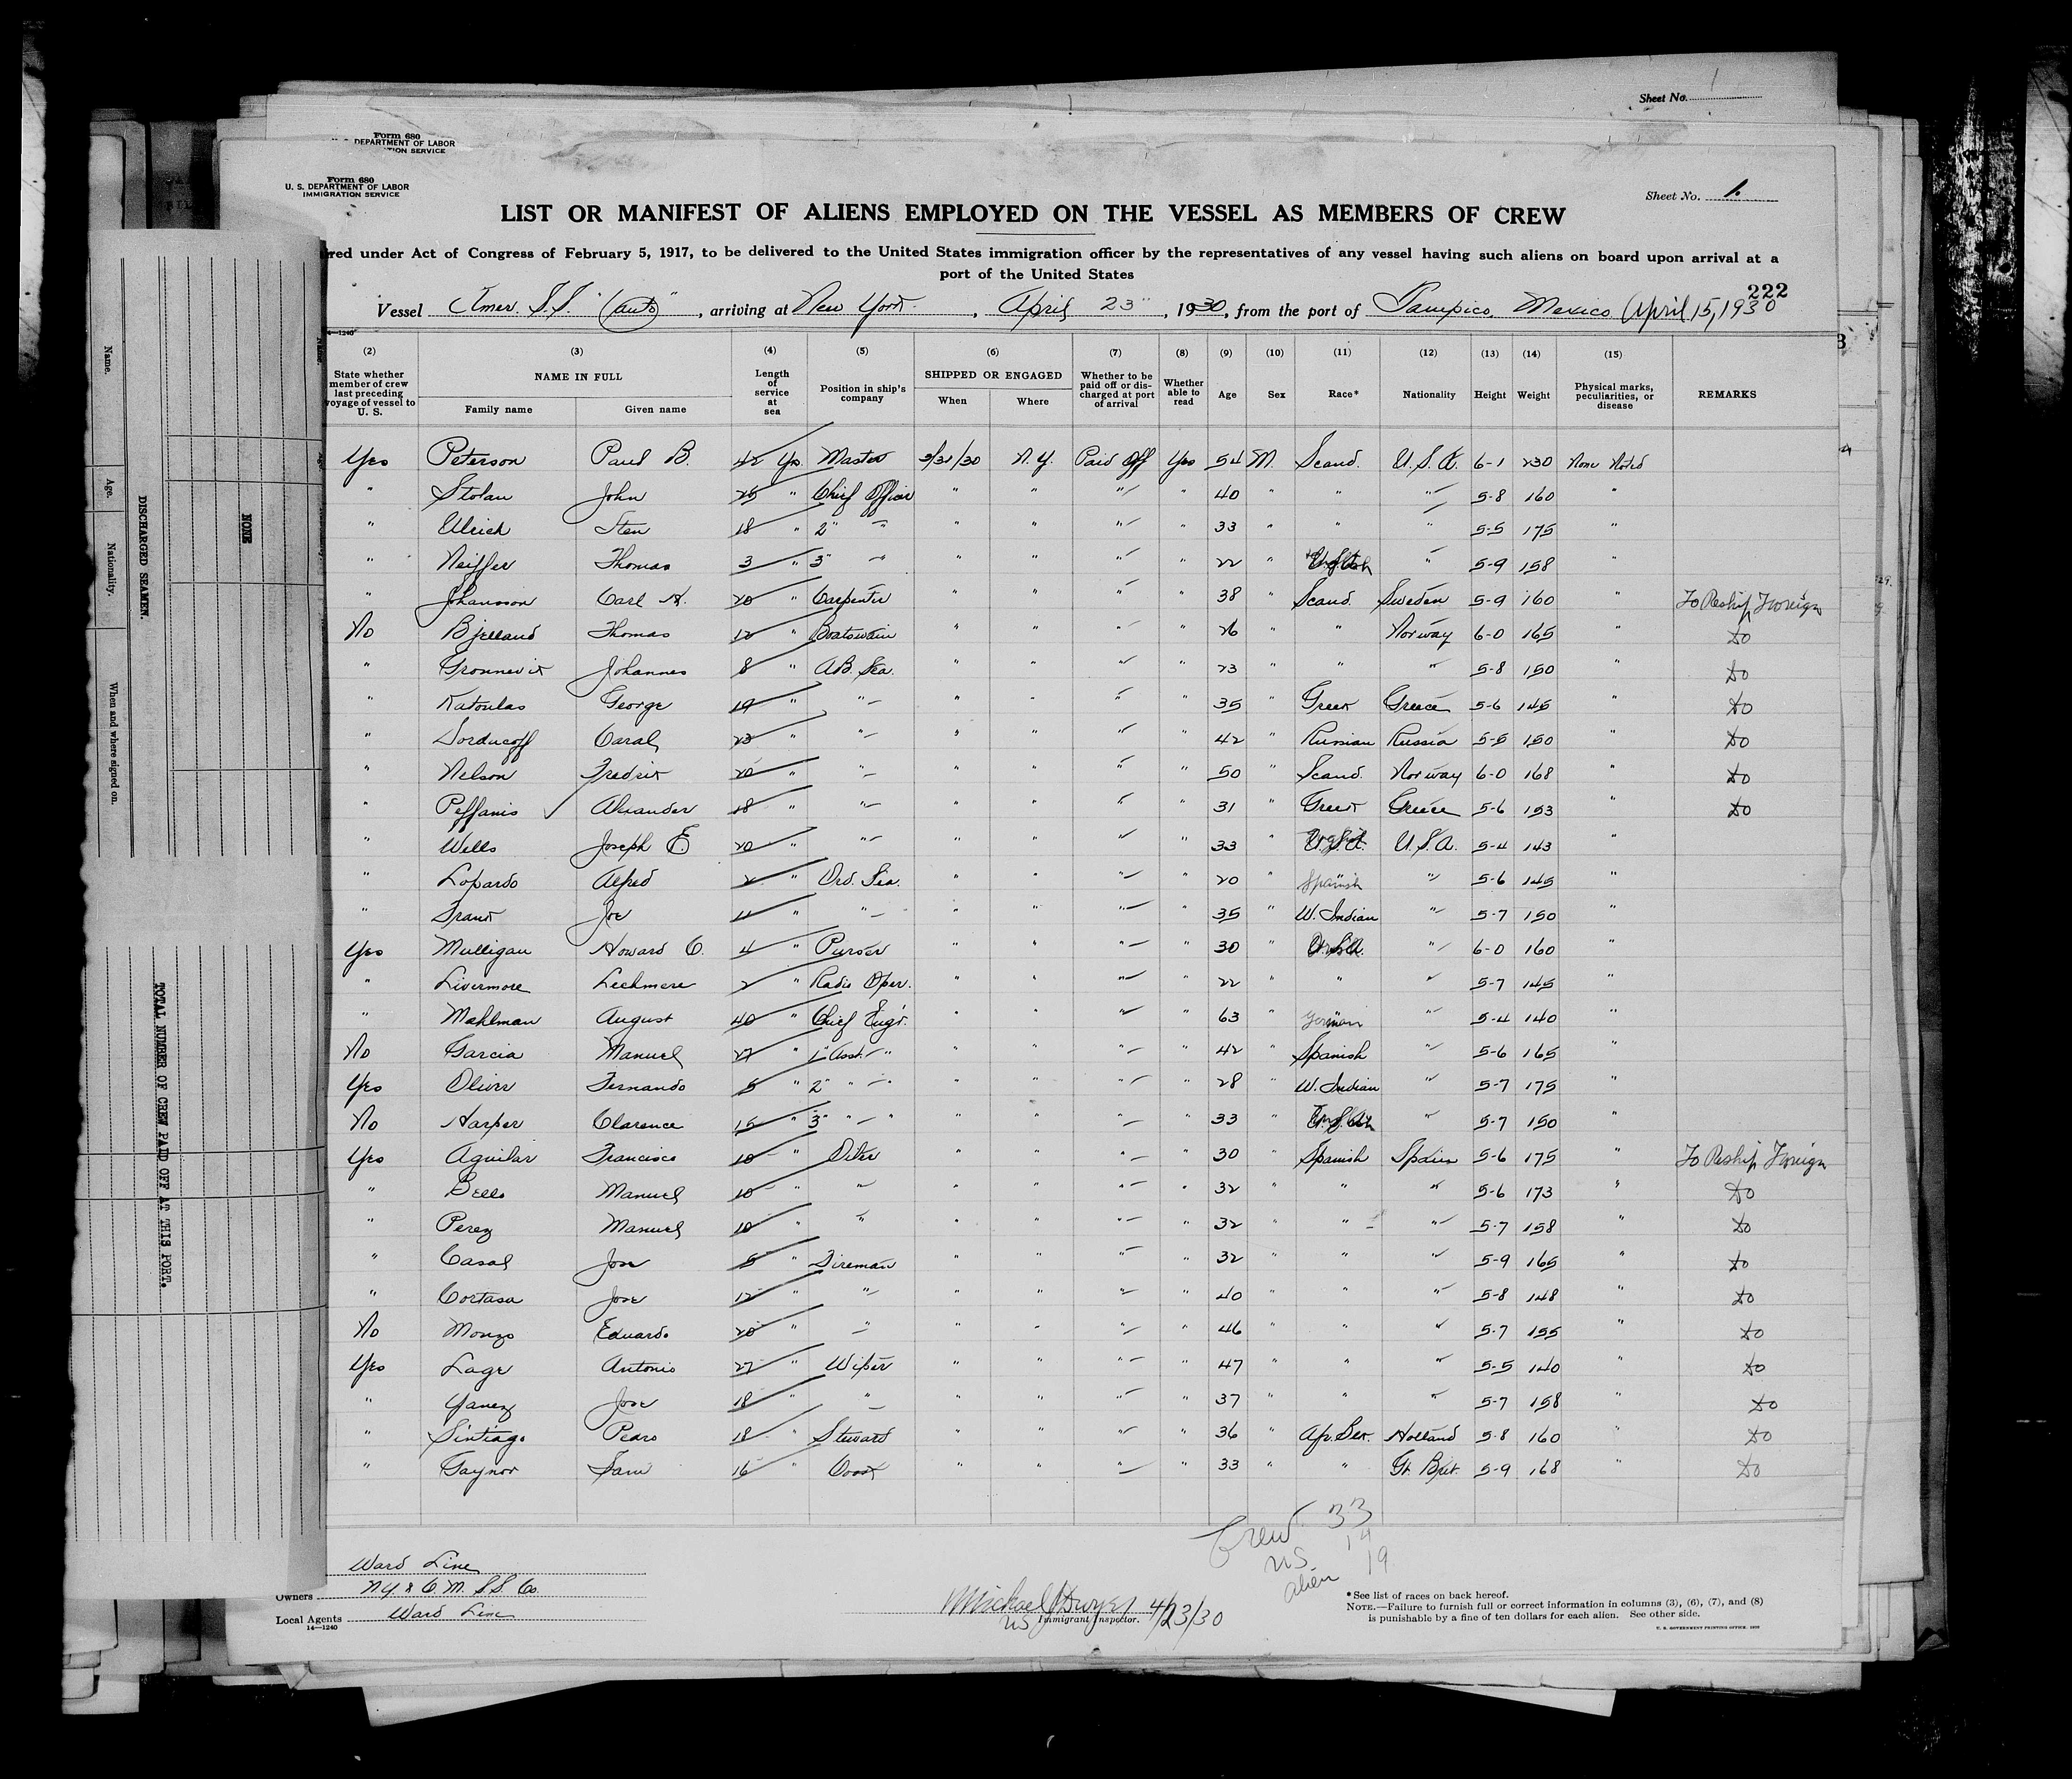 Sheet No. 1
Form 680
DEPARTMENT OF LABOR
TION SERVICE
Form 680
U. S. DEPARTMENT OF LABOR
IMMIGRATION SERVICE
Sheet No. 1.
LIST OR MANIFEST OF ALIENS EMPLOYED ON THE VESSEL AS MEMBERS OF CREW
red under Act of Congress of February 5, 1917, to be delivered to the United States immigration officer by the representatives of any vessel having such aliens on board upon arrival at a
port of the United States
222
Vessel Amer. S.S. "Cauto", arriving at New York, April 23", 1930, from the port of Tampico, Mexico April 15, 1930
14—1240
(2) (3) (4) (5) (6) (7) (8) (9) (10) (11) (12) (13) (14) (15)
State whether member of crew last preceding voyage of vessel to U. S. | NAME IN FULL Family name Given name | Length of service at sea | Position in ship's company | SHIPPED OR ENGAGED When Where | Whether to be paid off or discharged at port of arrival | Whether able to read | Age | Sex | Race* | Nationality | Height | Weight | Physical marks, peculiarities, or disease | REMARKS
Yes Peterson Paul B. 42 Yrs. Master 3/31/30 N.Y. Paid Off Yes 54 M. Scand. U.S.A. 6-1 230 None Noted
" Stolan John 25 " Chief Officer " " " " 40 " " " 5-8 160 "
" Ulrich Sten 18 " 2" " " " " " 33 " " " 5-5 175 "
" Neiffer Thomas 3 " 3" " " " " " 22 " " 5-9 158 "
" Johansson Carl A. 20 " Carpenter " " " " 38 " Scand. Sweden 5-9 160 " To Reship Foreign
No Bjelland Thomas 12 " Boatswain " " " " 26 " " Norway 6-0 165 " Do
" Gronnevik Johannes 8 " A.B. Sea. " " " " 23 " " " 5-8 150 " Do
" Katoulas George 19 " " " " " " 35 " Greek Greece 5-6 145 " Do
" Sorducoff Caral 23 " " " " " " 42 " Russian Russia 5-5 150 " Do
" Nelson Fredrik 20 " " " " " " 50 " Scand. Norway 6-0 168 " Do
" Peffanis Alexander 18 " " " " " " 31 " Greek Greece 5-6 153 " Do
" Wells Joseph E. 20 " " " " " " 33 " U.S.A. 5-4 143 "
" Lopardo Alfred 2 " Ord. Sea. " " " " 20 " Spanish " 5-6 145 "
" Joe " " " " " " 35 " W. Indian " 5-7 150 "
Yes Mulligan Howard C. 4 " Purser " " " " 30 " " 6-0 160 "
" Livermore Lechmere 2 " Radio Oper. " " " " 22 " " " 5-7 145 "
" Mahlman August 40 " Chief Eng'r. " " " " 63 " German " 5-4 140 "
No Garcia Manuel 27 " 1" Asst. " " " " " 42 " Spanish " 5-6 165 "
Yes Oliver Fernando 5 " 2" " " " " " " 28 " W. Indian " 5-7 175 "
No Harper Clarence 15 " 3" " " " " " " 33 " " 5-7 150 "
Yes Aguilar Francisco 10 " Oiler " " " " 30 " Spanish Spain 5-6 175 " To Reship Foreign
" Bello Manuel 10 " " " " " " 32 " " " 5-6 173 " Do
" Perez Manuel 10 " " " " " " 32 " " " 5-7 158 " Do
" Casal Jose 5 " Fireman " " " " 32 " " " 5-9 165 " Do
" Cortasa Jose 12 " " " " " " 40 " " " 5-8 148 " Do
No Monzo Eduardo 20 " " " " " " 46 " " " 5-7 155 " Do
Yes Lage Antonio 27 " Wiper " " " " 47 " " " 5-5 140 " Do
" Yanez Jose 18 " " " " " " 37 " " " 5-7 158 " Do
" Sintiago Pedro 18 " Steward " " " " 36 " Af. Blk. Holland 5-8 160 " Do
" Gaynor Sam 16 " Cook " " " " 33 " " Gt. Brit. 5-9 168 " Do
Crew 33
US 14
alien 19
Ward Line
Owners N.Y. & C. M. S.S. Co.
Local Agents Ward Line
14—1240
Michael O'Dwyer 4/23/30
US Immigrant Inspector.
*See list of races on back hereof.
NOTE.—Failure to furnish full or correct information in columns (3), (6), (7), and (8)
is punishable by a fine of ten dollars for each alien. See other side.
U. S. GOVERNMENT PRINTING OFFICE
Name.
Age.
Nationality.
When and where signed on.
DISCHARGED SEAMEN.
NONE
TOTAL NUMBER OF CREW PAID OFF AT THIS PORT.